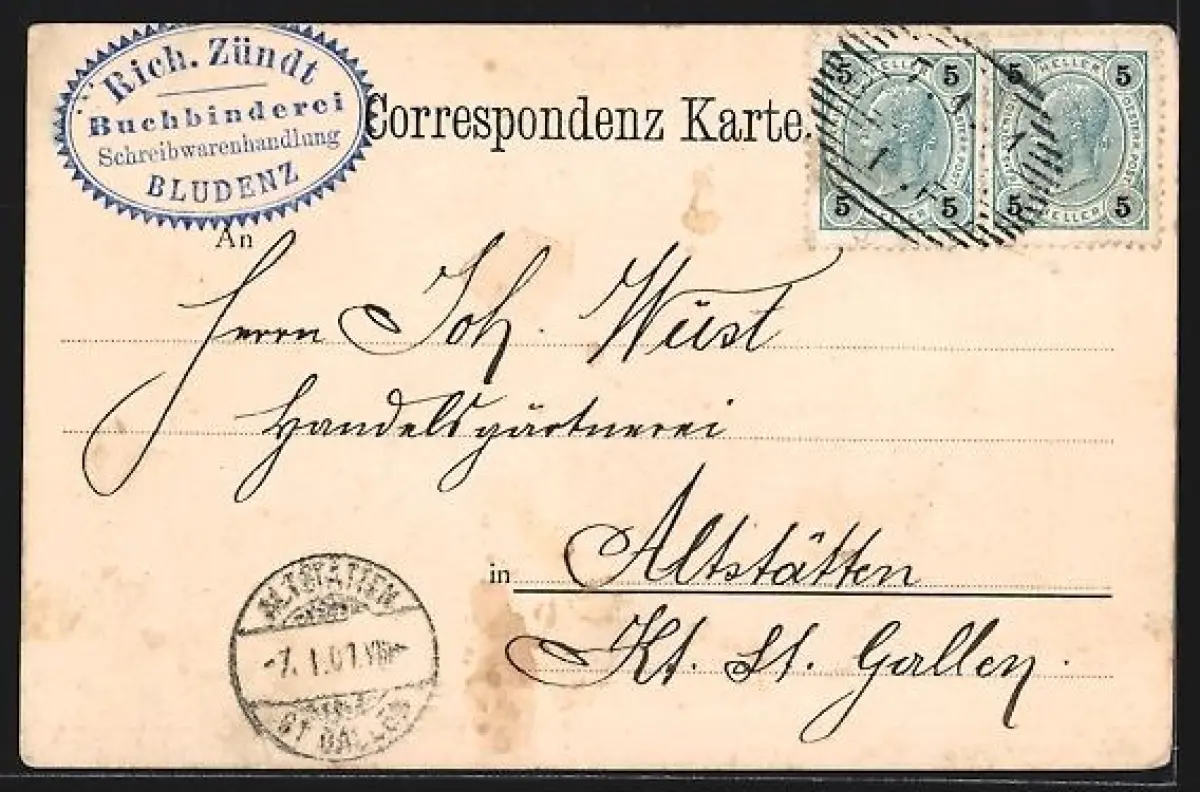 Rich. Zündt
Buchbinderei
Schreibwarenhandlung
BLUDENZ
Correspondenz Karte.
5 HELLER 5
5 HELLER 5
5 HELLER 5
5 HELLER 5
An
Herrn Joh. Wüst
Handelsgärtnerei
in Altstätten
Kt. St. Gallen.
ALTSTÄTTEN
-7. I. 01. VIII-
ST GALLEN